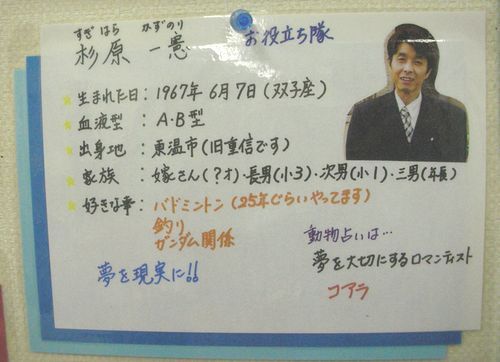 すぎはら かずのり
杉原 一憲 お役立ち隊
生まれた日：1967年 6月7日（双子座）
血液型：A・B型
出身地：東温市（旧重信です）
家族：嫁さん（？才）・長男（小3）・次男（小1）・三男（年長）
好きな事：バドミントン（25年ぐらいやってます）
釣り
ガンダム関係
夢を現実に!!
動物占いは…
夢を大切にするロマンティスト
コアラ